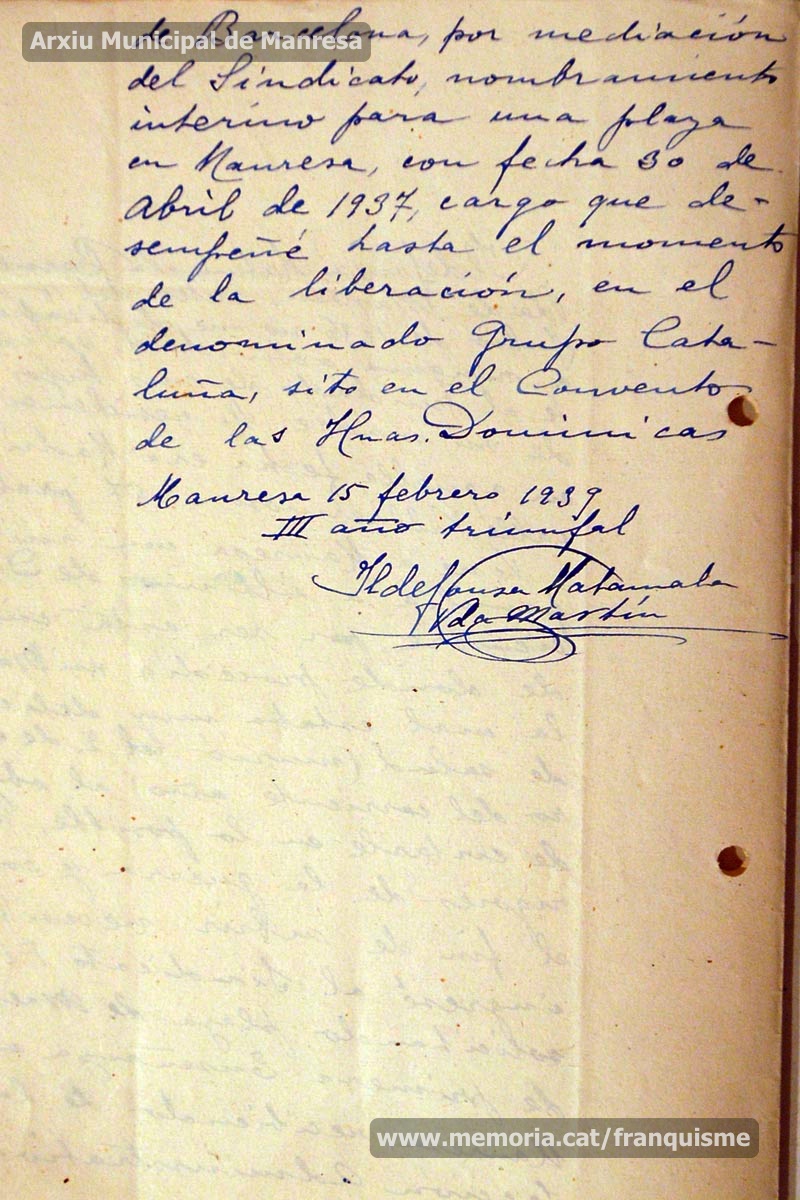 Arxiu Municipal de Manresa
de Barcelona, por mediación
del Sindicato, nombramiento
interino para una plaza
en Manresa, con fecha 30 de
Abril de 1937, cargo que de-
sempeñé hasta el momento
de la liberación, en el
denominado Grupo Cata-
luña, sito en el Convento
de las Hnas. Dominicas
Manresa 15 febrero 1939
III año triunfal
Ildefonsa Matamala
Vda Martín
www.memoria.cat/franquisme